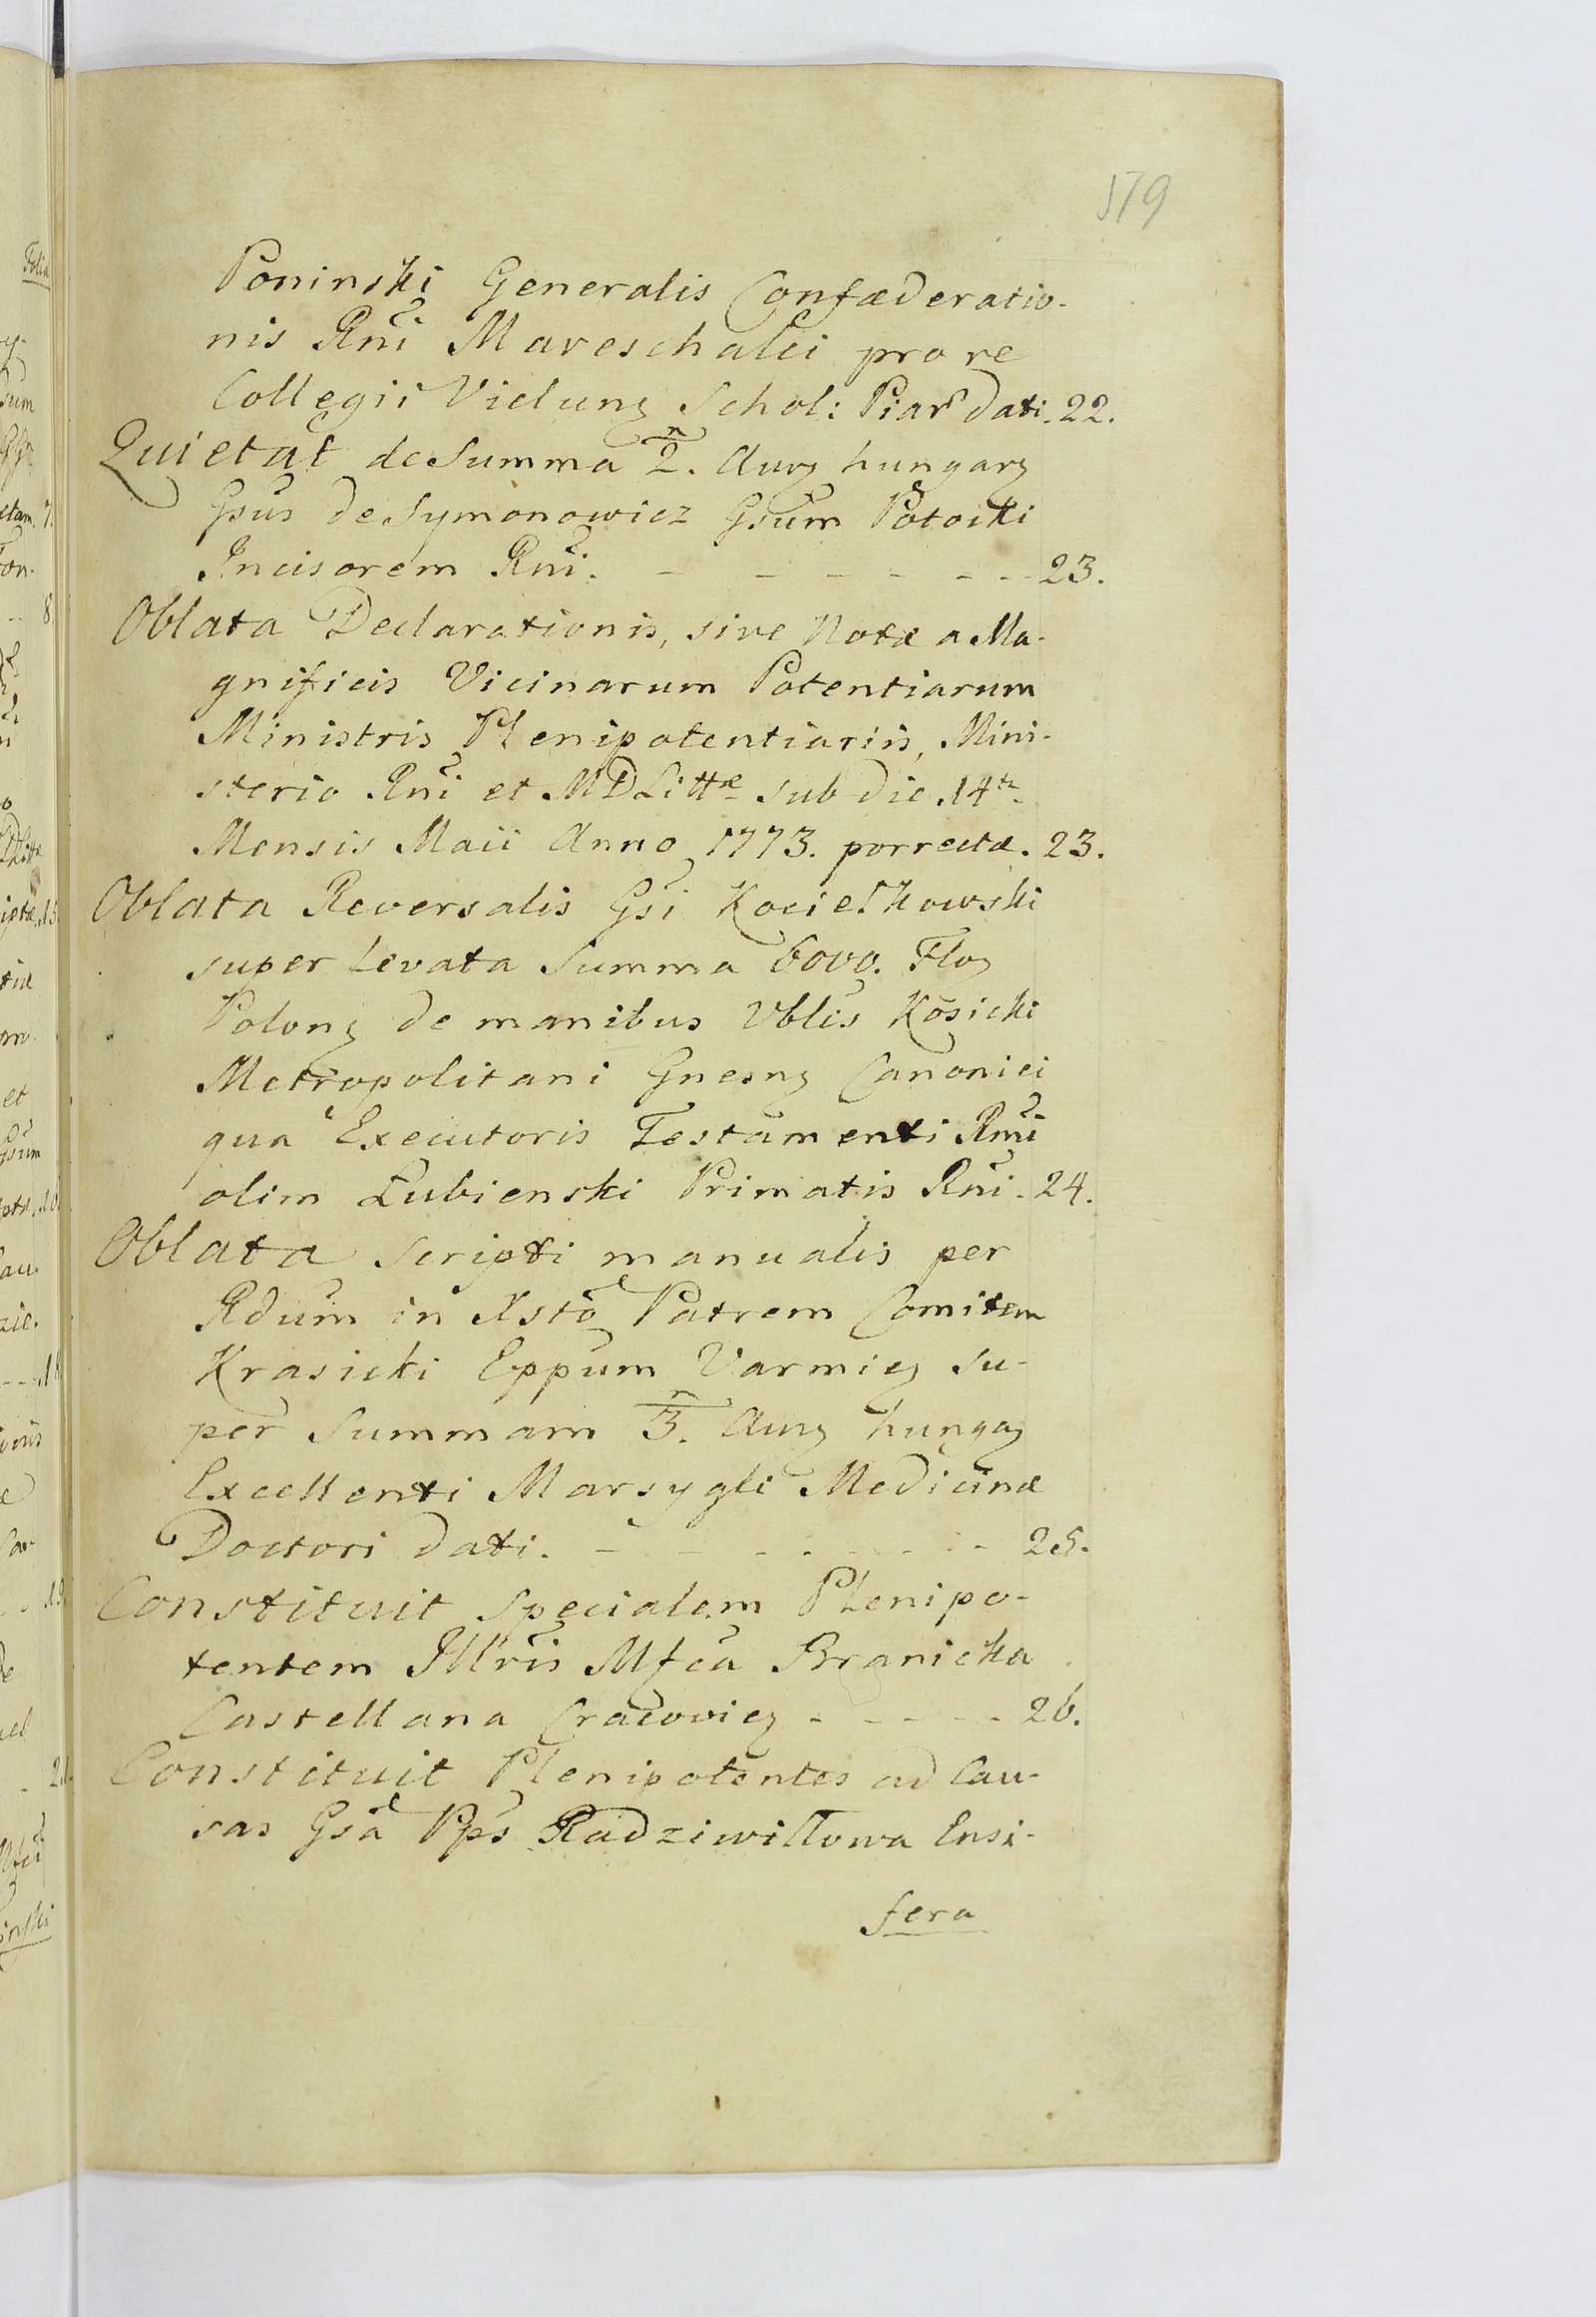 579
Poninski Generalis Confæderatio-
nis Rni Mareschalci pro re
Collegii Vielung Schol: Piar dati. 22.
Quietat de Summa 2. Aurg hungarg
Gsus de Symonowicz Gsum Potocki
Incisorem Rni. - - - - - - 23.
Oblata Declarationis, sive Notæ a Ma-
gnificis Vicinarum Potentiarum
Ministris Plenipotentiariis, Mini-
sterio Rni et MDLittæ sub die 14ta
Mensis Maii Anno 1773. porrectæ. 23.
Oblata Reversalis Gsi Kociełkowski
super levata Summa 6000. Flog
Polong de manibus Vblis Kosicki
Metropolitani Gnesng Canonici
qua Executoris Testamenti Rmi
olim Łubienski Primatis Rni. 24.
Oblata scripti manualis per
Rdum in Xsto Patrem Comitem
Krasicki Eppum Varmieg su-
per Summam 3. Aurg hungag
Excellenti Marsygli Medicinæ
Doctori dati. - - - - - - 25.
Constituit Specialem Plenipo-
tentem Illris Mfca Branicka
Castellana Cracovieg - - - - - 26.
Constituit Plenipotentes ad Cau-
sas Gsa Pps Radziwiłłowa Ensi-
fera